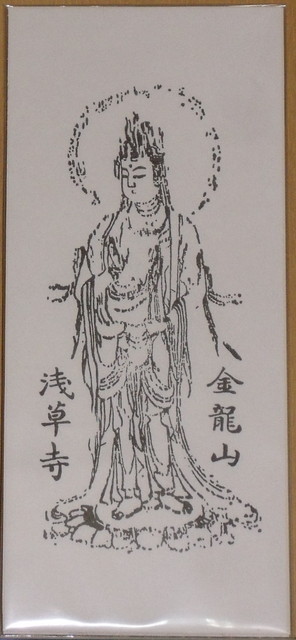 金龍山
浅草寺